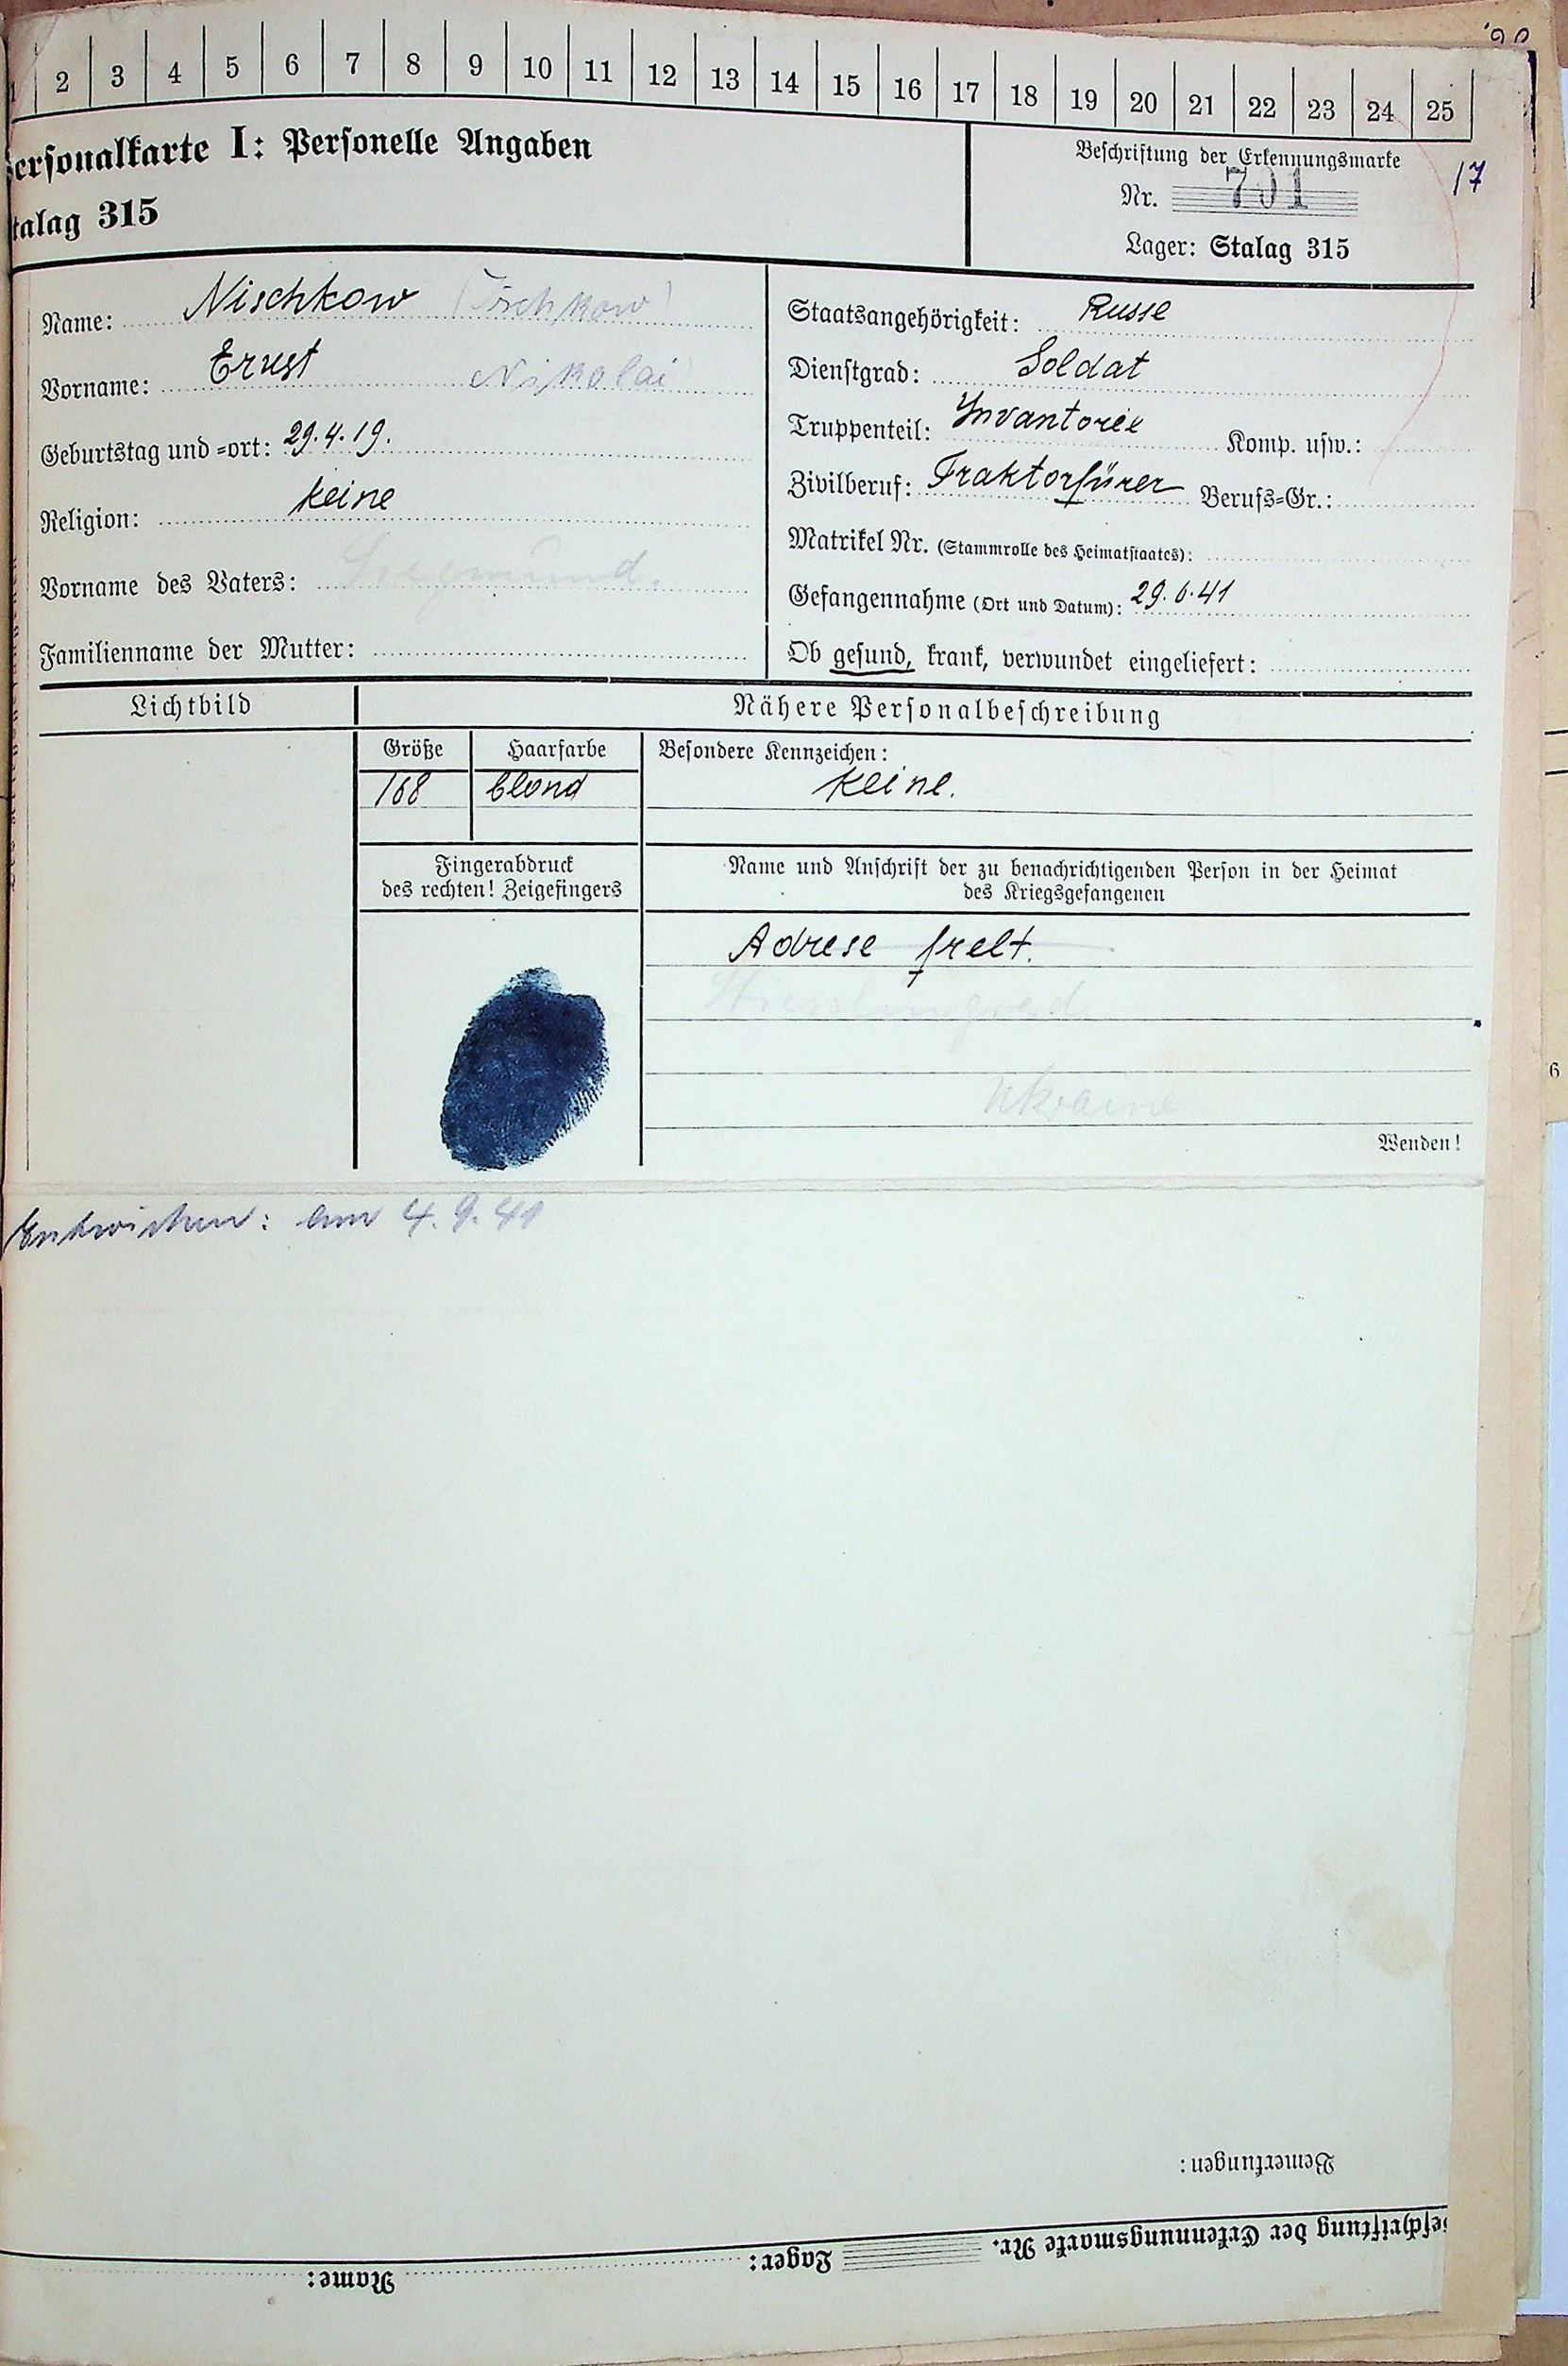 2 3 4 5 6 7 8 9 10 11 12 13 14 15 16 17 18 19 20 21 22 23 24 25
ersonalkarte I: Personelle Angaben
talag 315
Beschriftung der Erkennungsmarke
Nr. 701
17
Lager: Stalag 315
Name: Nischkow
Vorname: Ernst Nikolai
Geburtstag und =ort: 29.4.19.
Religion: keine
Vorname des Vaters: Siegmund.
Familienname der Mutter:
Staatsangehörigkeit: Russe
Dienstgrad: Soldat
Truppenteil: Invantorie Komp. usw.:
Zivilberuf: Traktorfürer Berufs=Gr.:
Matrikel Nr. (Stammrolle des Heimatstaates):
Gefangennahme (Ort und Datum): 29.6.41
Ob gesund, krank, verwundet eingeliefert:
Lichtbild
Nähere Personalbeschreibung
Größe
168
Haarfarbe
blond
Besondere Kennzeichen:
keine.
Fingerabdruck
des rechten! Zeigefingers
Name und Anschrift der zu benachrichtigenden Person in der Heimat
des Kriegsgefangenen
Adrese frelt.
Ukraine
Wenden!
Entwichen: am 4.9.41
Bemerkungen:
eschriftung der Erkennungsmarke Nr.
Lager:
Name:
6